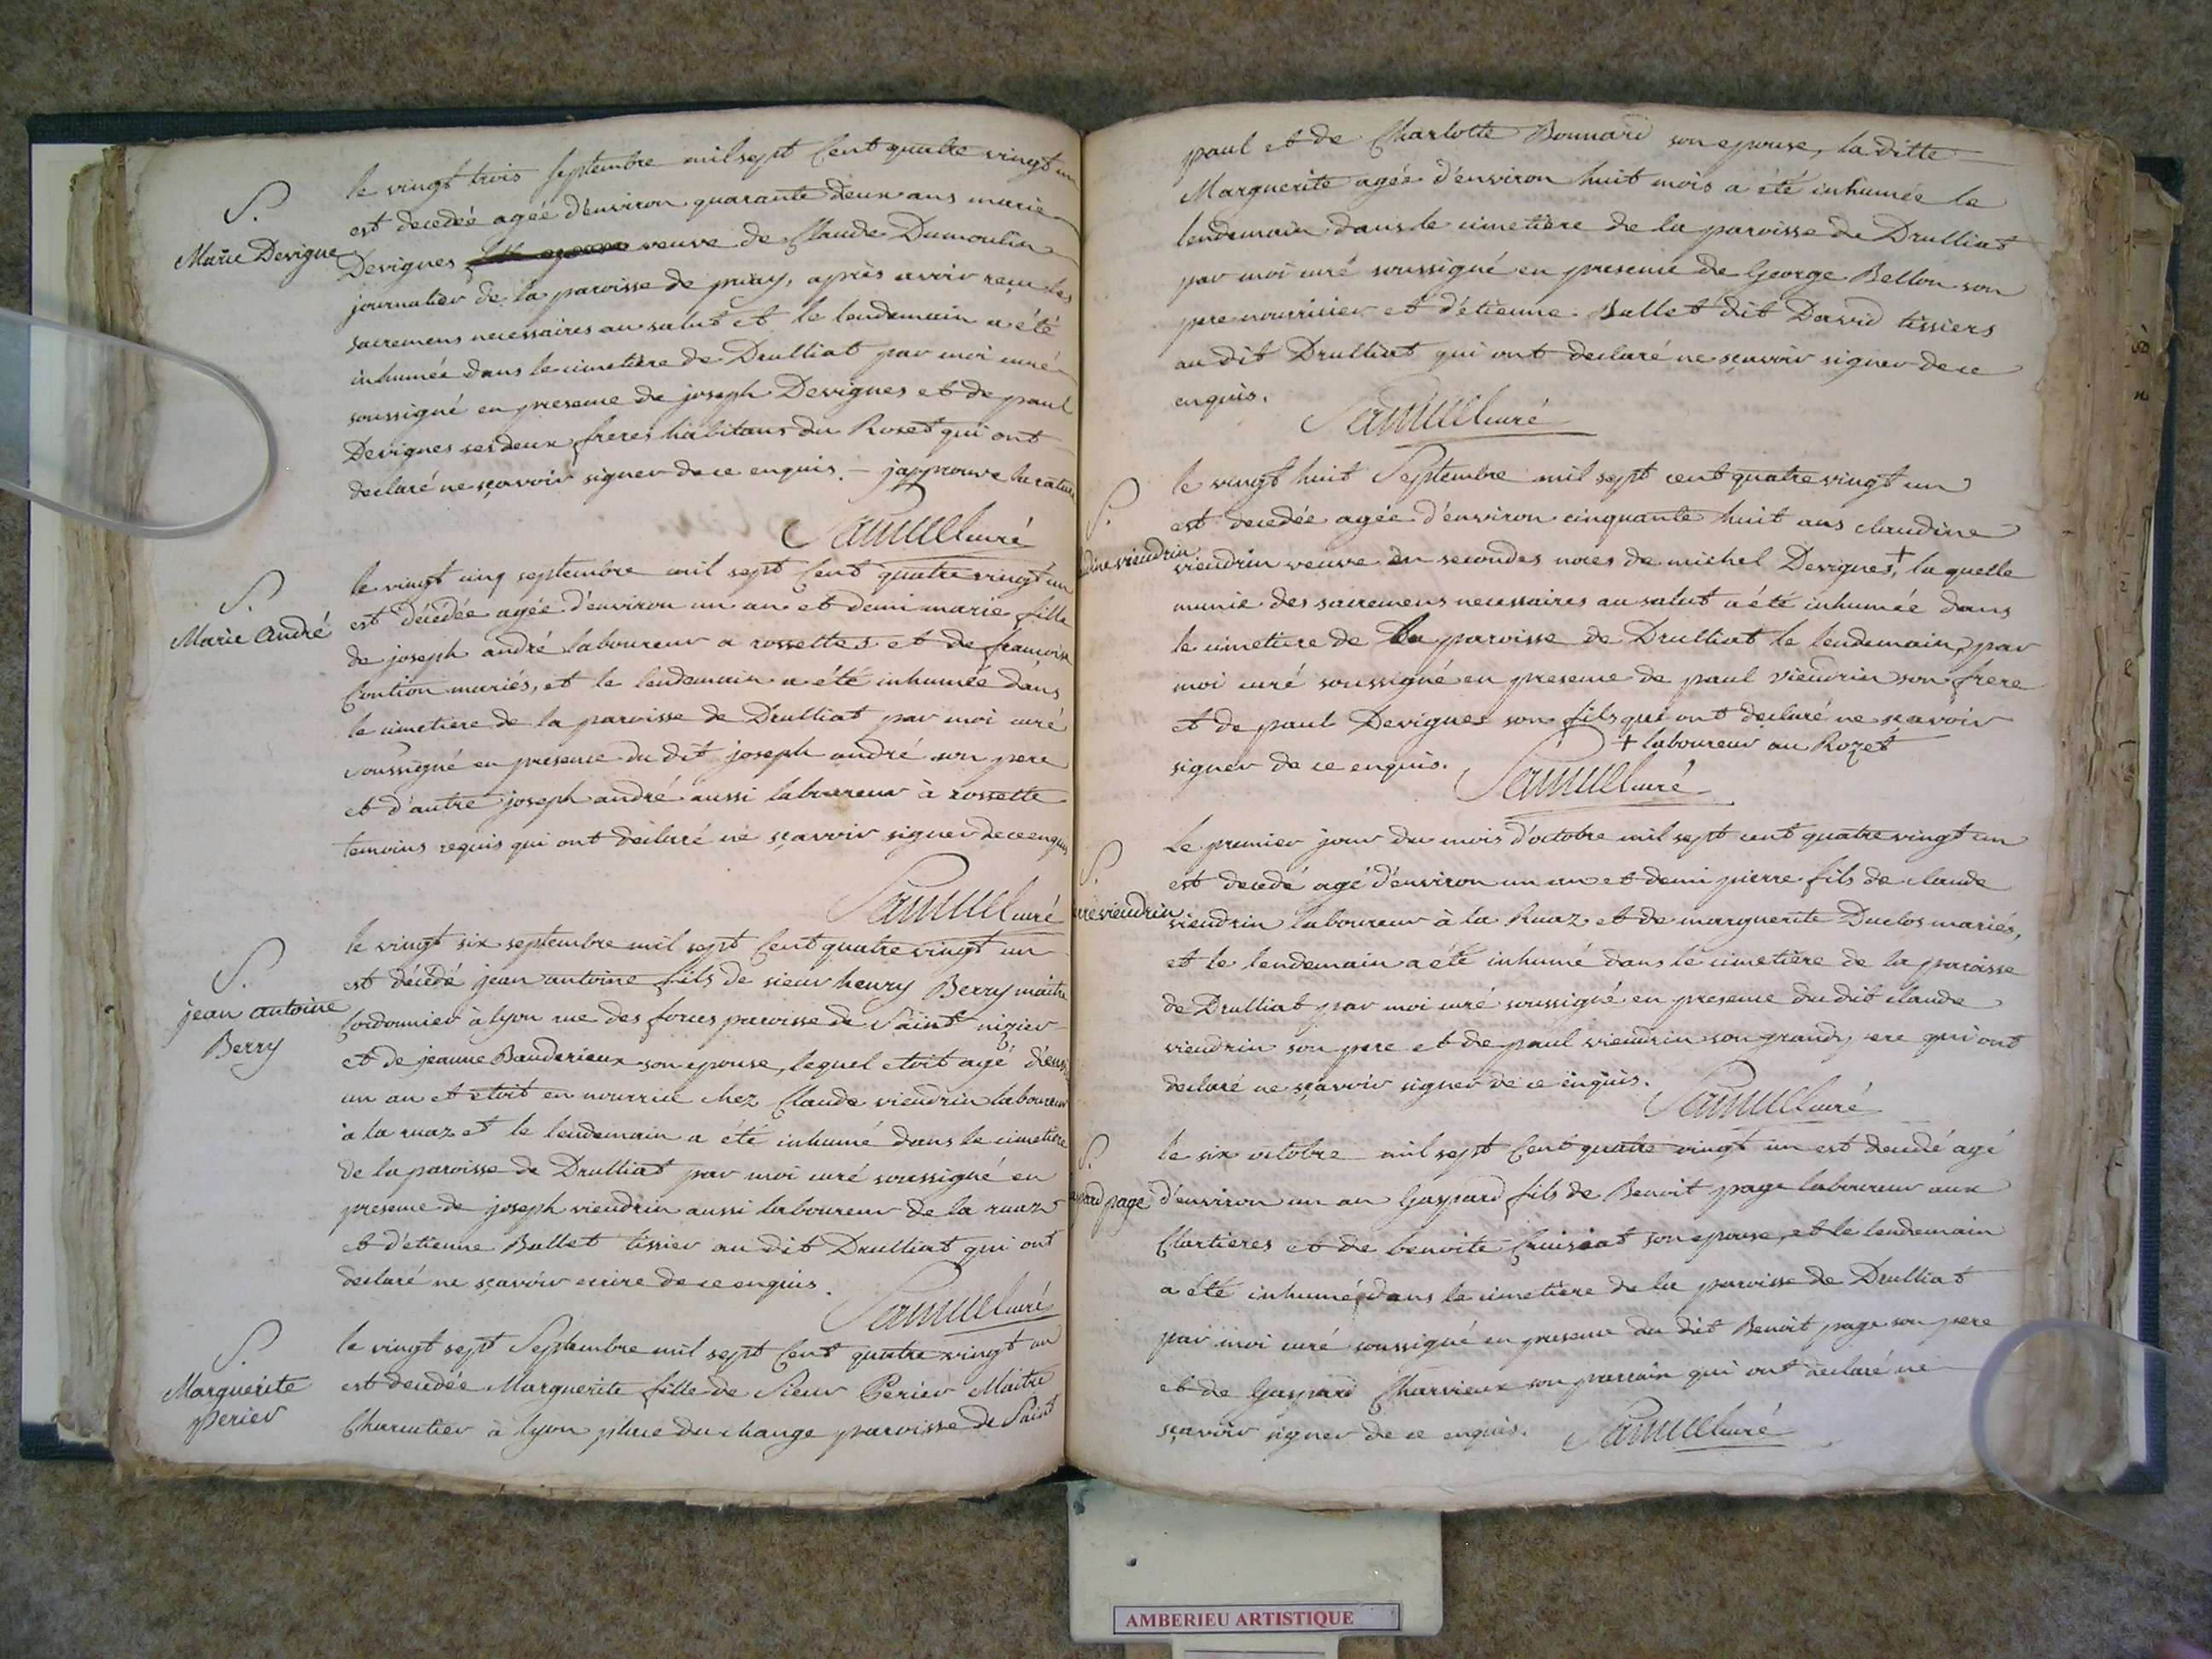 S.
Marie Devigne
le vingt trois septembre mil sept Cent quatre vingt un
est decedée agée d'environ quarante deux ans marie
Devignes veuve de Claude Dumoulin
journalier de la paroisse de priay, après avoir reçu les
sacremens necessaires au salut et le lendemain a été
inhumée dans le cimetière de Drulliat par moi curé
soussigné en presence de joseph Devignes et de paul
Devignes ses deux freres habitans du Roset qui ont
declaré ne sçavoir signer de ce enquis. - japprouve la rature
Samuel curé
S.
Marie andré
le vingt cinq septembre mil sept Cent quatre vingt un
est décédée agée d'environ un an et demi marie fille
de joseph andré laboureur a rossettes et de françoise
Contion mariés, et le lendemain a été inhumée dans
le cimetiere de la paroisse de Drulliat par moi curé
soussigné en presence du dit joseph andré son pere
et d'autre joseph andré aussi laboureur à rossette
temoins requis qui ont déclaré ne sçavoir signer de ce enquis
Samuel curé
S.
jean antoine
Berry
le vingt six septembre mil sept Cent quatre vingt un
est décédé jean antoine fils de sieur henry Berry maitre
Cordonnier à lyon rue des forces paroisse de Saint nizier
et de jeanne Bauderieux son epouse, lequel etoit agé d'env
un an et etoit en nourrice chez Claude vieudrin laboureur
à la ruaz et le lendemain a été inhumé dans le cimetiere
de la paroisse de Drulliat par moi curé soussigné en
presence de joseph vieudrin aussi laboureur de la ruaz
et d'etienne Bullet tissier au dit Drulliat qui ont
declaré ne sçavoir ecrire de ce enquis.
Samuel curé
S.
Marguerite
perier
le vingt sept Septembre mil sept Cent quatre vingt un
est decedée Marguerite fille de Sieur Perier Maitre
Charcutier à lyon place du change paroisse de Saint
paul et de Charlotte Bonnard son epouse, la ditte
Marguerite agée d'environ huit mois a été inhumée le
lendemain dans le cimetière de la paroisse de Drulliat
par moi curé soussigné en presence de George Bellon son
pere nourricier et d'étienne Bullet dit David tissiers
au dit Drulliat qui ont declaré ne sçavoir signer de ce
enquis.
Samuel curé
S.
dine vieudrin
le vingt huit Septembre mil sept cent quatre vingt un
est decedée agée d'environ cinquante huit ans claudine
vieudrin veuve en secondes noces de michel Devignes +, la quelle
munie des sacremens necessaires au salut a été inhumée dans
le cimetiere de la paroisse de Drulliat le lendemain, par
moi curé soussigné en presence de paul vieudrin son frere
et de paul Devignes son fils qui ont declaré ne sçavoir
+ laboureur au Rozet
signer de ce enquis.
Samuel curé
S.
rre vieudrin
Le premier jour du mois d'octobre mil sept cent quatre vingt un
est decedé agé d'environ un an et demi pierre fils de claude
vieudrin laboureur à la Ruaz et de marguerite Duclos mariés,
et le lendemain a été inhumé dans le cimetière de la paroisse
de Drulliat par moi curé soussigné en presence du dit claude
vieudrin son pere et de paul vieudrin son grand pere qui ont
declaré ne sçavoir signer de ce enquis.
Samuel curé
S.
spard page
le six octobre mil sept Cent quatre vingt un est decedé agé
d'environ un an Gaspard fils de Benoit page laboureur aux
Clartieres et de benoite Cruisiat son epouse, et le lendemain
a été inhumé dans le cimetière de la paroisse de Drulliat
par moi curé soussigné en presence du dit Benoit page son pere
et de Gaspard Charvieux son parrain qui ont declaré ne
sçavoir signer de ce enquis.
Samuel curé
AMBERIEU ARTISTIQUE